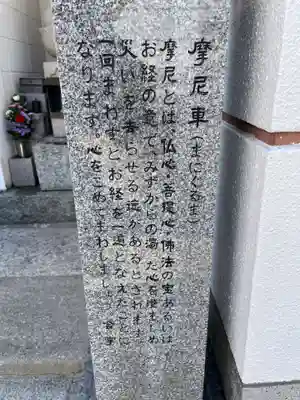 摩尼車(まにぐるま)
摩尼とは、仏心、菩提心、佛法の宝あるいは
お経の意で、みずからの濁った心を澄ましめ
災いを去らせる徳があるとされます。
一回まわすとお経を一返となえたことに
なります。心をこめてまわしましょう。合掌